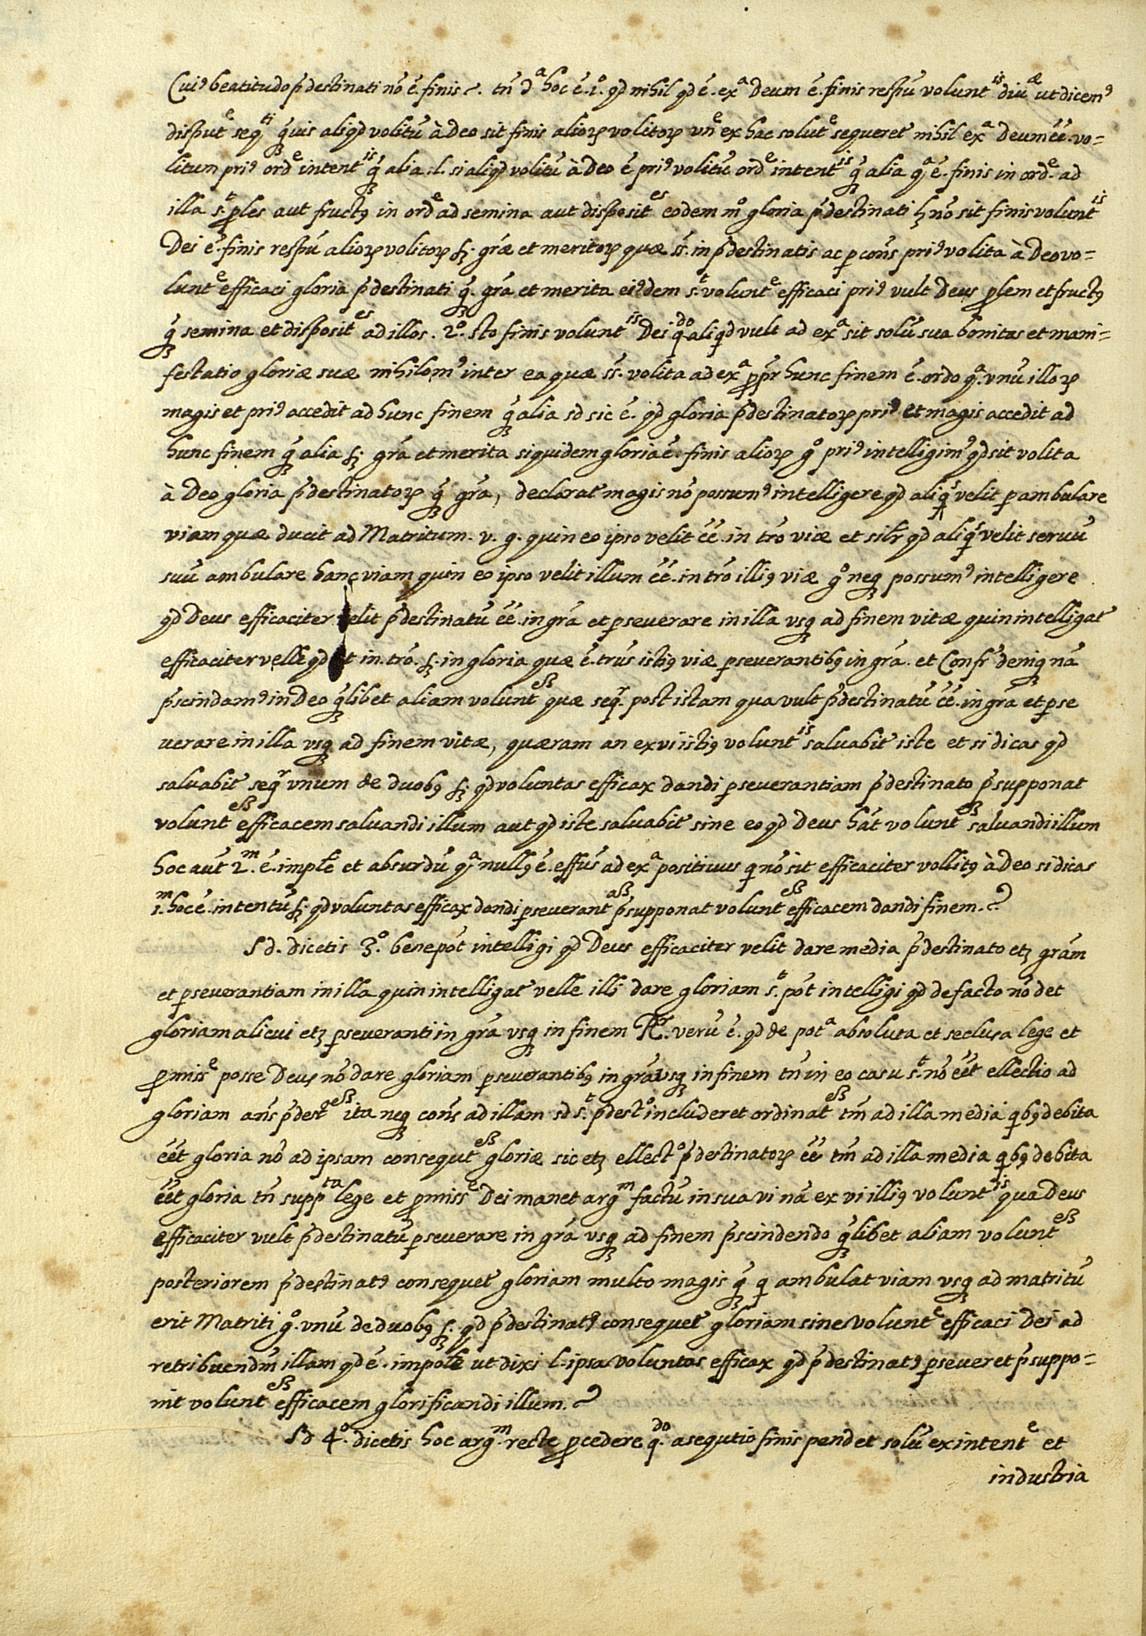 Cui9 beatitudo p̃destinati nõ ẽ. finis. tñ dª hoc ẽ. 1º. qd nihil qd ẽ. exª Deum ẽ. finis respũ voluntⁱˢ diuᵉ ut dicem9
disputᵉ seqᵗⁱ quis aliqd volitũ à Deo sit finis alioꝝ volitoꝝ vñ ex hac solutᵉ sequeret nihil exª Deum ẽẽ. vo=
litum pri9 ordᵉ intentⁱˢ q̃ alia .l. si aliqd volitũ à Deo ẽ pri9 volitũ ordᵉ intentⁱˢ q̃ alia qª ẽ. finis in ordᵉ ad
illa s.ᵗ ꝓles aut fruct9 in ordᵉ ad semina aut dispositᵉˢ eodem mº gloria p̃destinati nõ sit finis voluntⁱˢ
Dei ẽ. finis respũ alioꝝ volitoꝝ sꝫ. grãe et meritoꝝ quæ st̃. in p̃destinatis ac ꝑ cons̃ pri9 volita à Deo vo=
luntᵉ efficaci gloria p̃destinati q̃. grã et merita ei9dem s.ᵗ voluntᵉ efficaci pri9 vult Deus ꝓlem et fruct9
q̃ semina et dispositᵉˢ ad illos. 2º. sto finis voluntⁱˢ Dei qᵈᵒ aliqd vult ad exª sit solũ sua bonitas et mani=
festatio gloriæ suæ nihilom9 inter ea quæ st̃. volita ad exª ꝓp̃r hunc finem ẽ. ordo qª. vnũ illoꝝ
magis et pri9 accedit ad hunc finem q̃ alia sd sic ẽ. qd gloria p̃destinatoꝝ pri9 et magis accedit ad
hunc finem q̃ alia sꝫ. grã et merita siquidem gloria ẽ. finis alioꝝ gº pri9 intelligim9 qd sit volita
à Deo gloria p̃destinatoꝝ q̃ grã, declarat magis nõ possum9 intelligere qd aliq̃ velit ꝑambulare
viam quæ ducit ad Matritum. v. g. quin eo ipso velit ẽẽ. in trõ viæ et silr̃ qd aliq̃ velit seruũ
suũ ambulare hanc viam quin eo ipso velit illum ẽẽ. in trõ illi9 viæ gº neq possum9 intelligere
qd Deus efficaciter velit p̃destinatũ ẽẽ. in grã et ꝑseverare in illa vsq ad finem vitæ quin intelligat
efficaciter velle qd t in trõ. sꝫ. in gloria quæ ẽ. trũs isti9 viæ ꝑseverantib9 in grã. et Confr̃ deniq nã
p̃scindam9 in Deo q̃libet aliam voluntᵉᵐ quæ seqr̃. post istam qua vult p̃destinatũ ẽẽ. in grã et ꝑse
uerare in illa vsq ad finem vitæ, quæram an ex vi isti9 voluntⁱˢ salvabit iste et si dicas qd
salvabit seqr̃ vnum de duob9 sꝫ qd voluntas efficax dandi ꝑseverantiam p̃destinato p̃supponat
voluntᵉᵐ efficacem salvandi illum aut qd iste salvabit sine eo qd Deus hãt voluntᵉᵐ salvandi illum
hoc aut̃ 2.ᵐ ẽ. implẽ et absurdũ qª null9 ẽ. effũs ad exª positivus q nõ sit efficaciter vollit9 à Deo si dicas
1.ᵐ hoc ẽ. intentũ sꝫ qd voluntas efficax dandi ꝑseverantᵃᵐ p̃supponat voluntᵉᵐ efficacem dandi finem.
Sd. dicetis 3.º bene põt intelligi qd Deus efficaciter velit dare media p̃destinato etꝫ grãm
et ꝑseverantiam in illa quin intelligat velle illi dare gloriam s.ᵗ põt intelligi qd de facto nõ det
gloriam alicui etꝫ ꝑseveranti in grã vsq in finem R. verũ ẽ. qd de potª absoluta et seclusa lege et
ꝓmissᵉ posse Deus nõ dare gloriam ꝑseverantib9 in grã vsq in finem tñ in eo casu s.ᵗ nõ ẽẽt ellectio ad
gloriam ans̃ p̃destᵉᵐ ita neq cons̃ ad illam sd s.ᵗ p̃destº includeret ordinatᵉᵐ tm̃ ad illa media qb9 debita
ẽẽt gloria nõ ad ipsam consequtᵉᵐ gloriæ sic etꝫ ellectº p̃destinatoꝝ ẽẽ tm̃ ad illa media qb9 debita
ẽẽt gloria tñ suppᵗᵃ lege et ꝓmissᵉ Dei manet argᵐ factũ in sua vi nã ex vi illi9 voluntⁱˢ qua Deus
efficaciter vult p̃destinatũ ꝑseverare in grã vsq ad finem p̃scindendo q̃libet aliam voluntᵉᵐ
posteriorem p̃destinat9 consequet gloriam multo magis q̃ q ambulat viam vsq ad matritũ
erit Matriti gº. vnũ de duob9 sꝫ qd p̃destinat9 consequet gloriam sine voluntᵉ efficaci Dei ad
retribuendm̃ illam qd ẽ. impõle ut dixi l. ipsa voluntas efficax qd p̃destinat9 ꝑseveret p̃suppo=
nit voluntᵉᵐ efficacem glorificandi illum.
Sd 4º. dicetis hoc argᵐ. recte ꝓcedere qᵈᵒ. asequtio finis pendet solũ ex intentᵉ et
industria